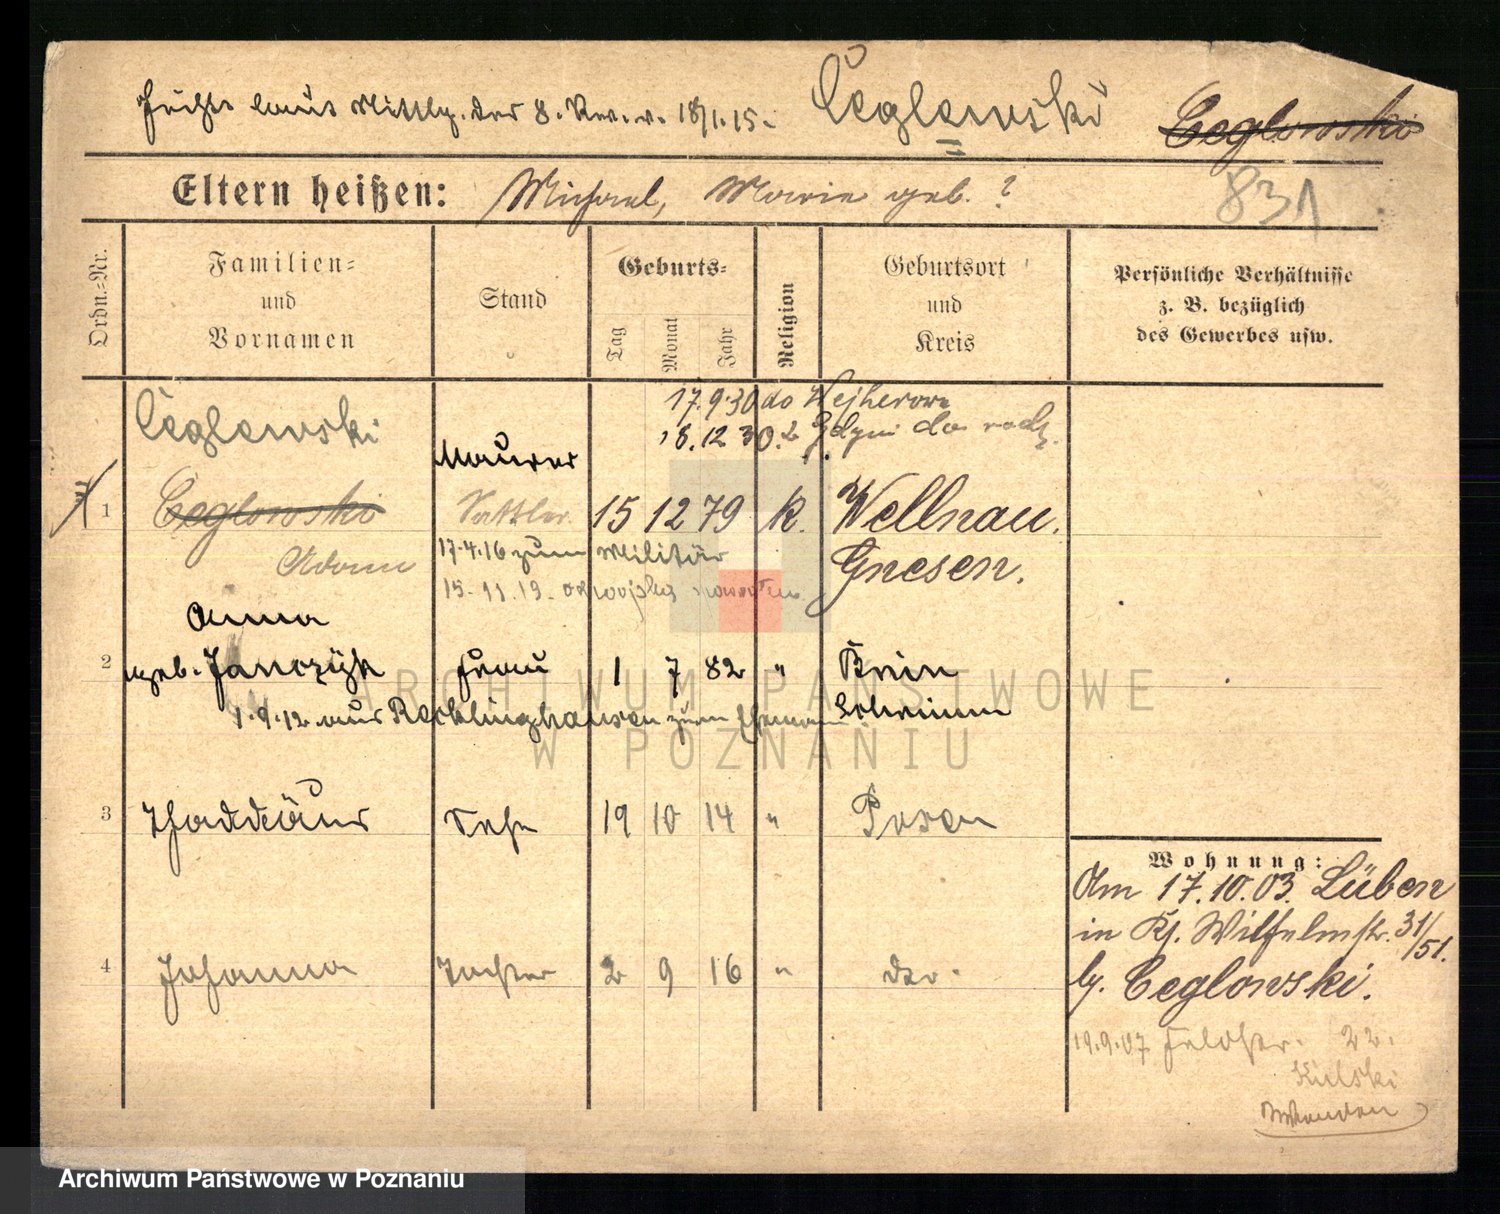 heißt laut Mittlg. des 8. Rev. v. 18/1.15. Ceglewski Ceglowski
Eltern heißen: Michael, Marie geb. ?
831
Ordn.-Nr.
Familien-
und
Vornamen
Stand
Geburts-
Tag
Monat
Jahr
Religion
Geburtsort
und
Kreis
Persönliche Verhältnisse
z. B. bezüglich
des Gewerbes usw.
17.9.30 do Wejherowa
18.12 30 z Gdyni do rodz.
Ceglewski
Maurer
1 Ceglowski Sattler 15 12 79 k. Wellnau.
Adam 17.4.16 zum Militär Gnesen.
15.11.19
Anna
2 geb. Janczyk Frau 1 7 82 " Brin
1.9.12 aus Recklinghausen zum Ehemann Schrimm
3 Thaddäus Sohn 19 10 14 " Posen
4 Johanna Tochter 2 9 16 " do.
Wohnung:
Am 17.10.03. Lüben
in Kj. Wilhelmstr. 31/51.
by. Ceglowski.
19.9.07 Feldstr. 22.
Kulski
ARCHIWUM PAŃSTWOWE
W POZNANIU
Archiwum Państwowe w Poznaniu